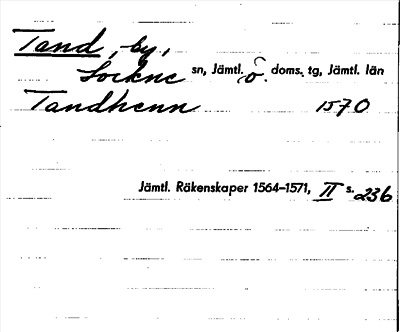 Tand, by,
Lockne sn, Jämtl. ö. doms. tg, Jämtl. län
Tandhenn 1570
Jämtl. Räkenskaper 1564–1571, II s. 236